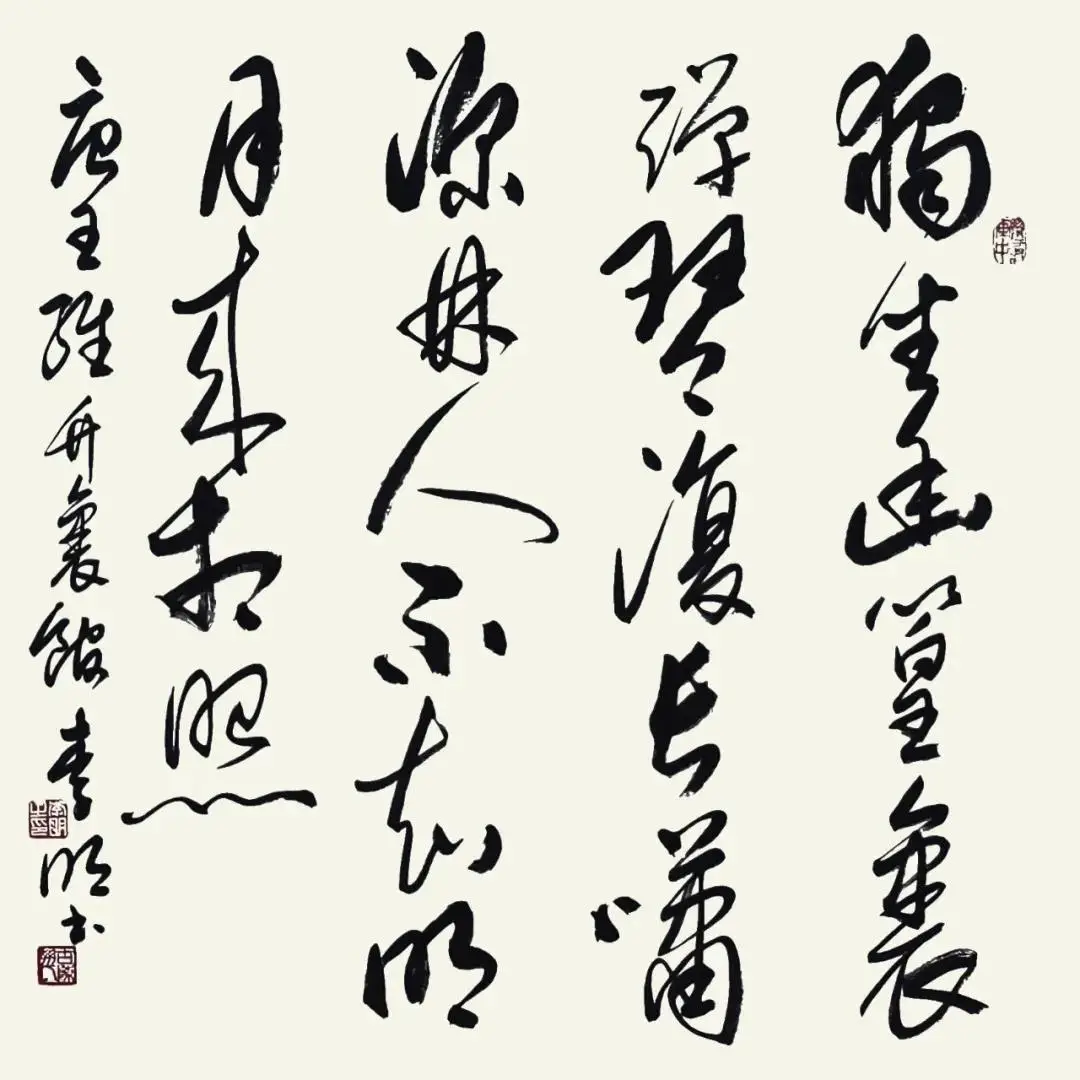 獨坐幽篁裏
彈琴復長嘯
深林人不知明
月來相照
唐王維竹裏館李明书